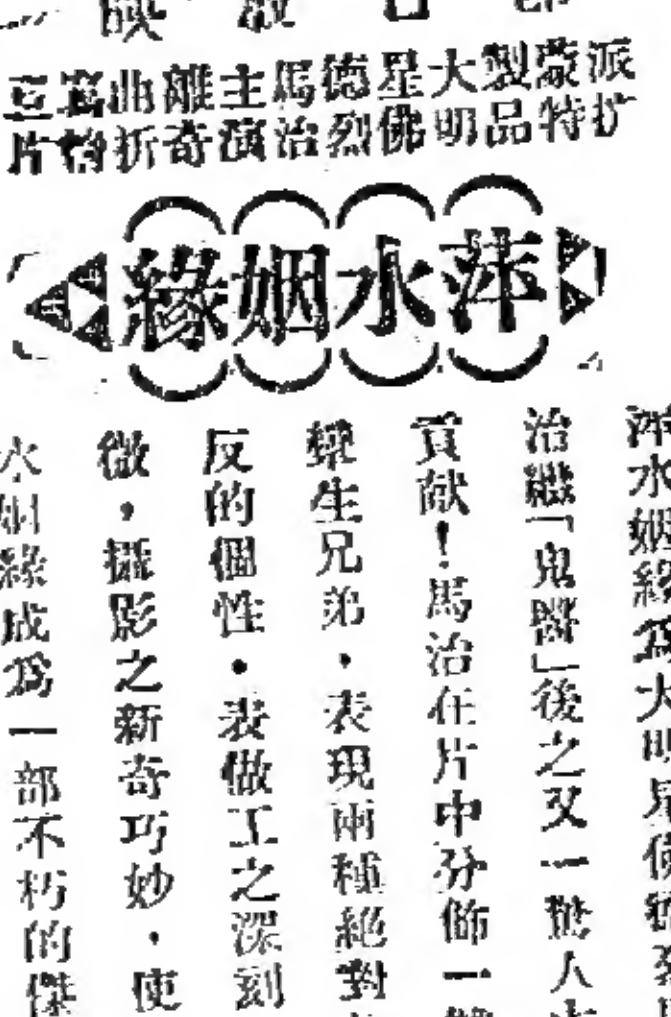 派拉蒙特製品大明星佛德烈馬治主演離奇曲折寫情巨片
萍水姻緣
萍水姻緣爲大明星佛德烈
治繼「鬼醫」後之又一驚人
貢献!馬治在片中分飾一雙
孿生兄弟・表現兩種絕對
反的個性・表做工之深刻
微・攝影之新奇巧妙・使
水姻緣成爲一部不朽的傑